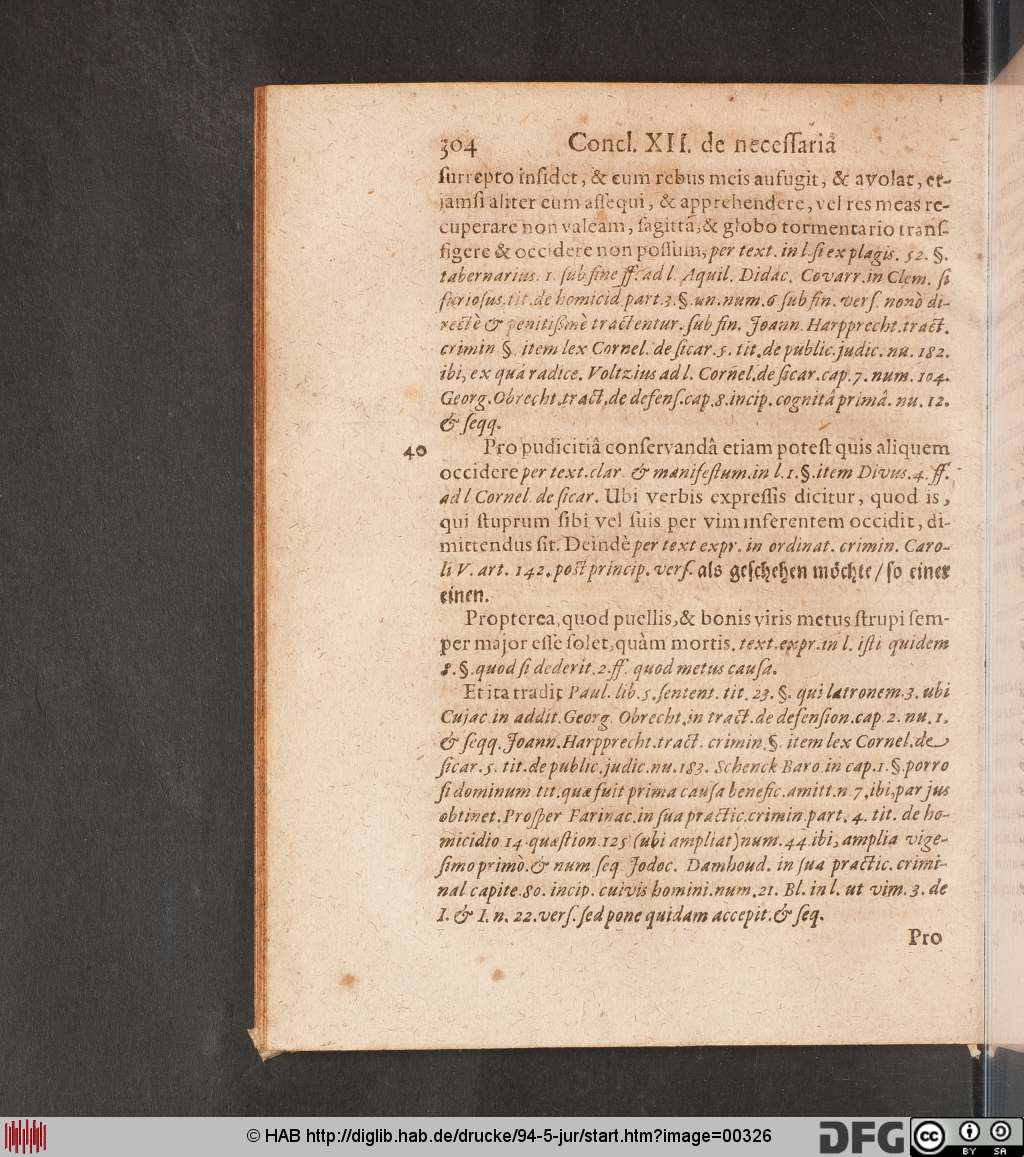 304 Concl. XII. de necessariâ
surrepto insidet, & cum rebus meis aufugit, & avolat, et-
jamsi aliter eum assequi, & apprehendere, vel res meas re-
cuperare non valeam, sagittâ, & globo tormentario trans-
figere & occidere non possum, per text. in l. si ex plagis. 52. §.
tabernarius. 1. sub fine ff. ad l. Aquil. Didac. Covarr. in Clem. si
furiosus. tit. de homicid. part. 3. §. un. num. 6 sub fin. vers. nonò di-
rectè & penitißimè tractentur. sub fin. Joann. Harpprecht. tract.
crimin. §. item lex Cornel. de sicar. 5. tit. de public. judic. nu. 182.
ibi, ex quâ radice. Voltzius ad l. Cornel. de sicar. cap. 7. num. 104.
Georg. Obrecht. tract. de defens. cap. 8. incip. cognitâ primâ. nu. 12.
& seqq.
40 Pro pudicitiâ conservandâ etiam potest quis aliquem
occidere per text. clar. & manifestum. in l. 1. §. item Divus. 4. ff.
ad l Cornel. de sicar. Ubi verbis expressis dicitur, quod is,
qui stuprum sibi vel suis per vim inferentem occidit, di-
mittendus sit. Deindè per text expr. in ordinat. crimin. Caro-
li V. art. 142. post princip. vers. als geschehen möchte / so einer
einen.
Propterea, quod puellis, & bonis viris metus strupi sem-
per major esse solet, quàm mortis. text. expr. in l. isti quidem
8. §. quod si dederit. 2. ff. quod metus causa.
Et ita tradit Paul. lib. 5. sentent. tit. 23. §. qui latronem. 3. ubi
Cujac. in addit. Georg. Obrecht. in tract. de defension. cap. 2. nu. 1.
& seqq. Joann. Harpprecht. tract. crimin. §. item lex Cornel. de
sicar. 5. tit. de public. judic. nu. 183. Schenck Baro. in cap. 1. §. porro
si dominum. tit. quæ fuit prima causa benefic. amitt. n. 7. ibi, par jus
obtinet. Prosper Farinac. in sua practic. crimin. part. 4. tit. de ho-
micidio 14. quæstion. 125 (ubi ampliat) num. 44. ibi, amplia vige-
simo primò. & num seq. Jodoc. Damhoud. in sua practic. crimi-
nal capite. 80. incip. cuivis homini. num. 21. Bl. in l. ut vim. 3. de
I. & I. n. 22. vers. sed pone quidam accepit. & seq.
Pro
© HAB http://diglib.hab.de/drucke/94-5-jur/start.htm?image=00326
DFG
cc BY SA